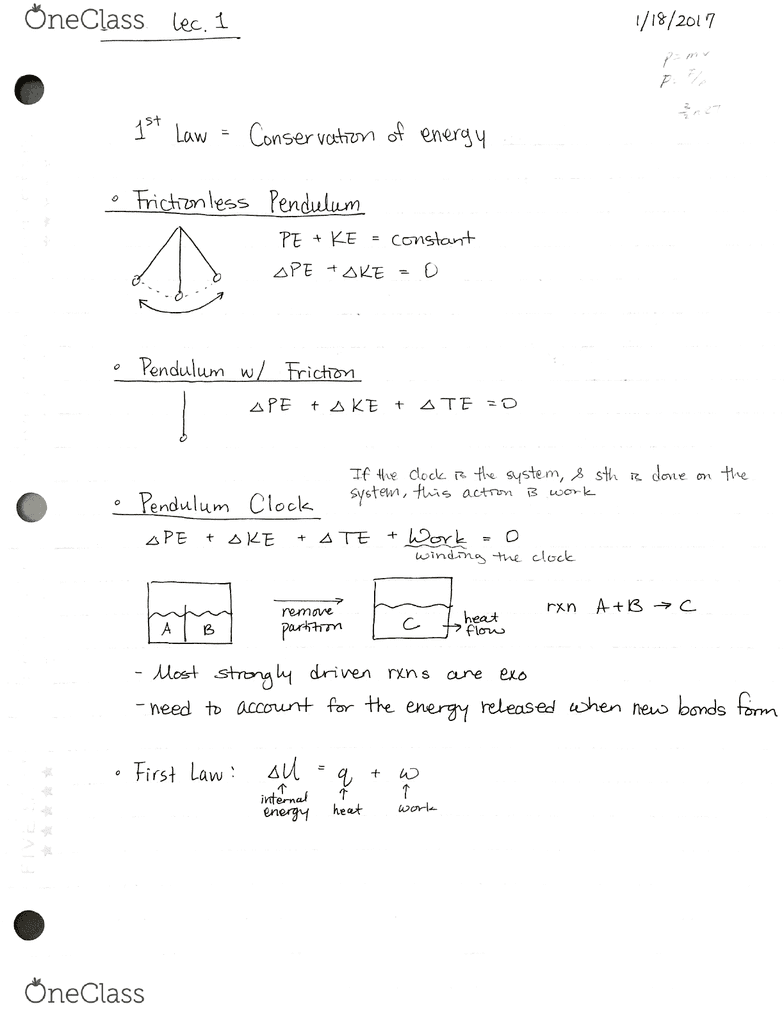 OneClass Lec. 1
1/18/2017
p = mv
1st Law = Conservation of energy
Frictionless Pendulum
PE + KE = constant
ΔPE + ΔKE = 0
Pendulum w/ Friction
ΔPE + ΔKE + ΔTE = 0
If the clock is the system, & sth is done on the
system, this action is work
Pendulum Clock
ΔPE + ΔKE + ΔTE + Work = 0
winding the clock
A B
remove
partition
C
heat
flow
rxn A+B → C
- Most strongly driven rxns are exo
- need to account for the energy released when new bonds form
First Law: ΔU = q + w
internal
energy
heat
work
FIVE
OneClass